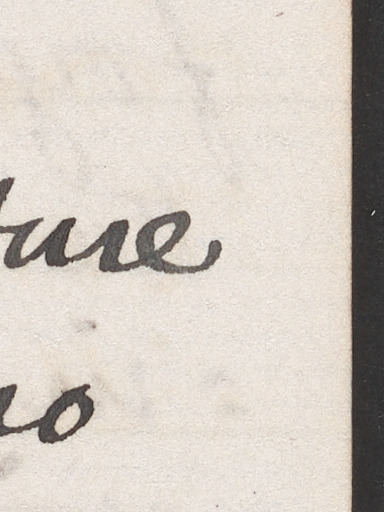 ture
no